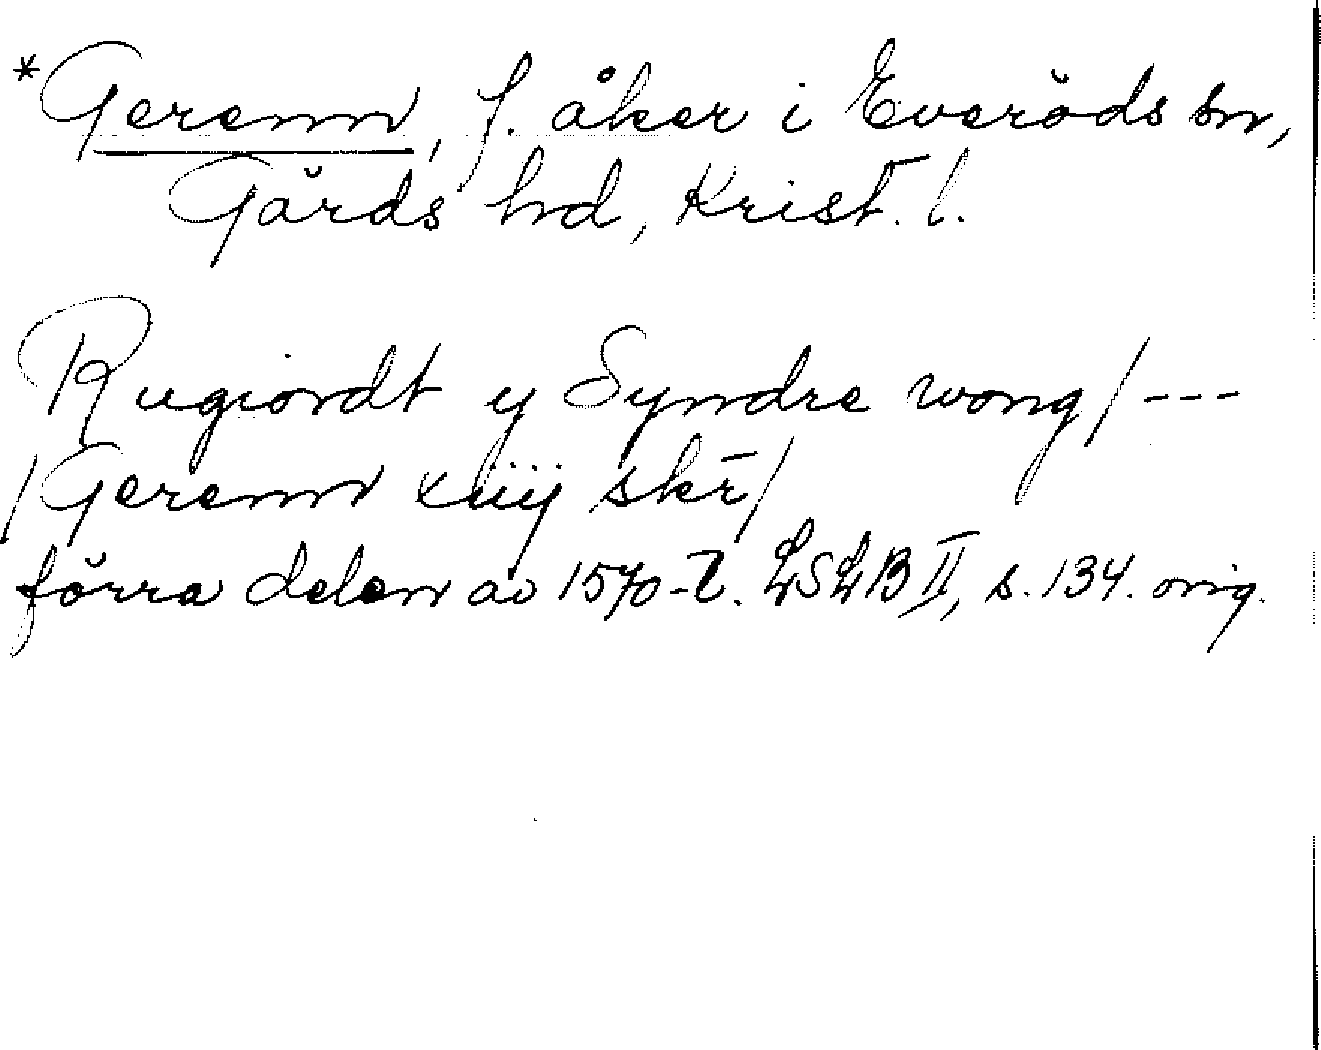 *Gerenn, f. åker i Everöds sn,
Gärds hd, Krist. l.
Rugiordt y Syndre wong/---
/Gerenn xiiij skr̄/
förra delen av 1570-t. LSLB II, s. 134. orig.